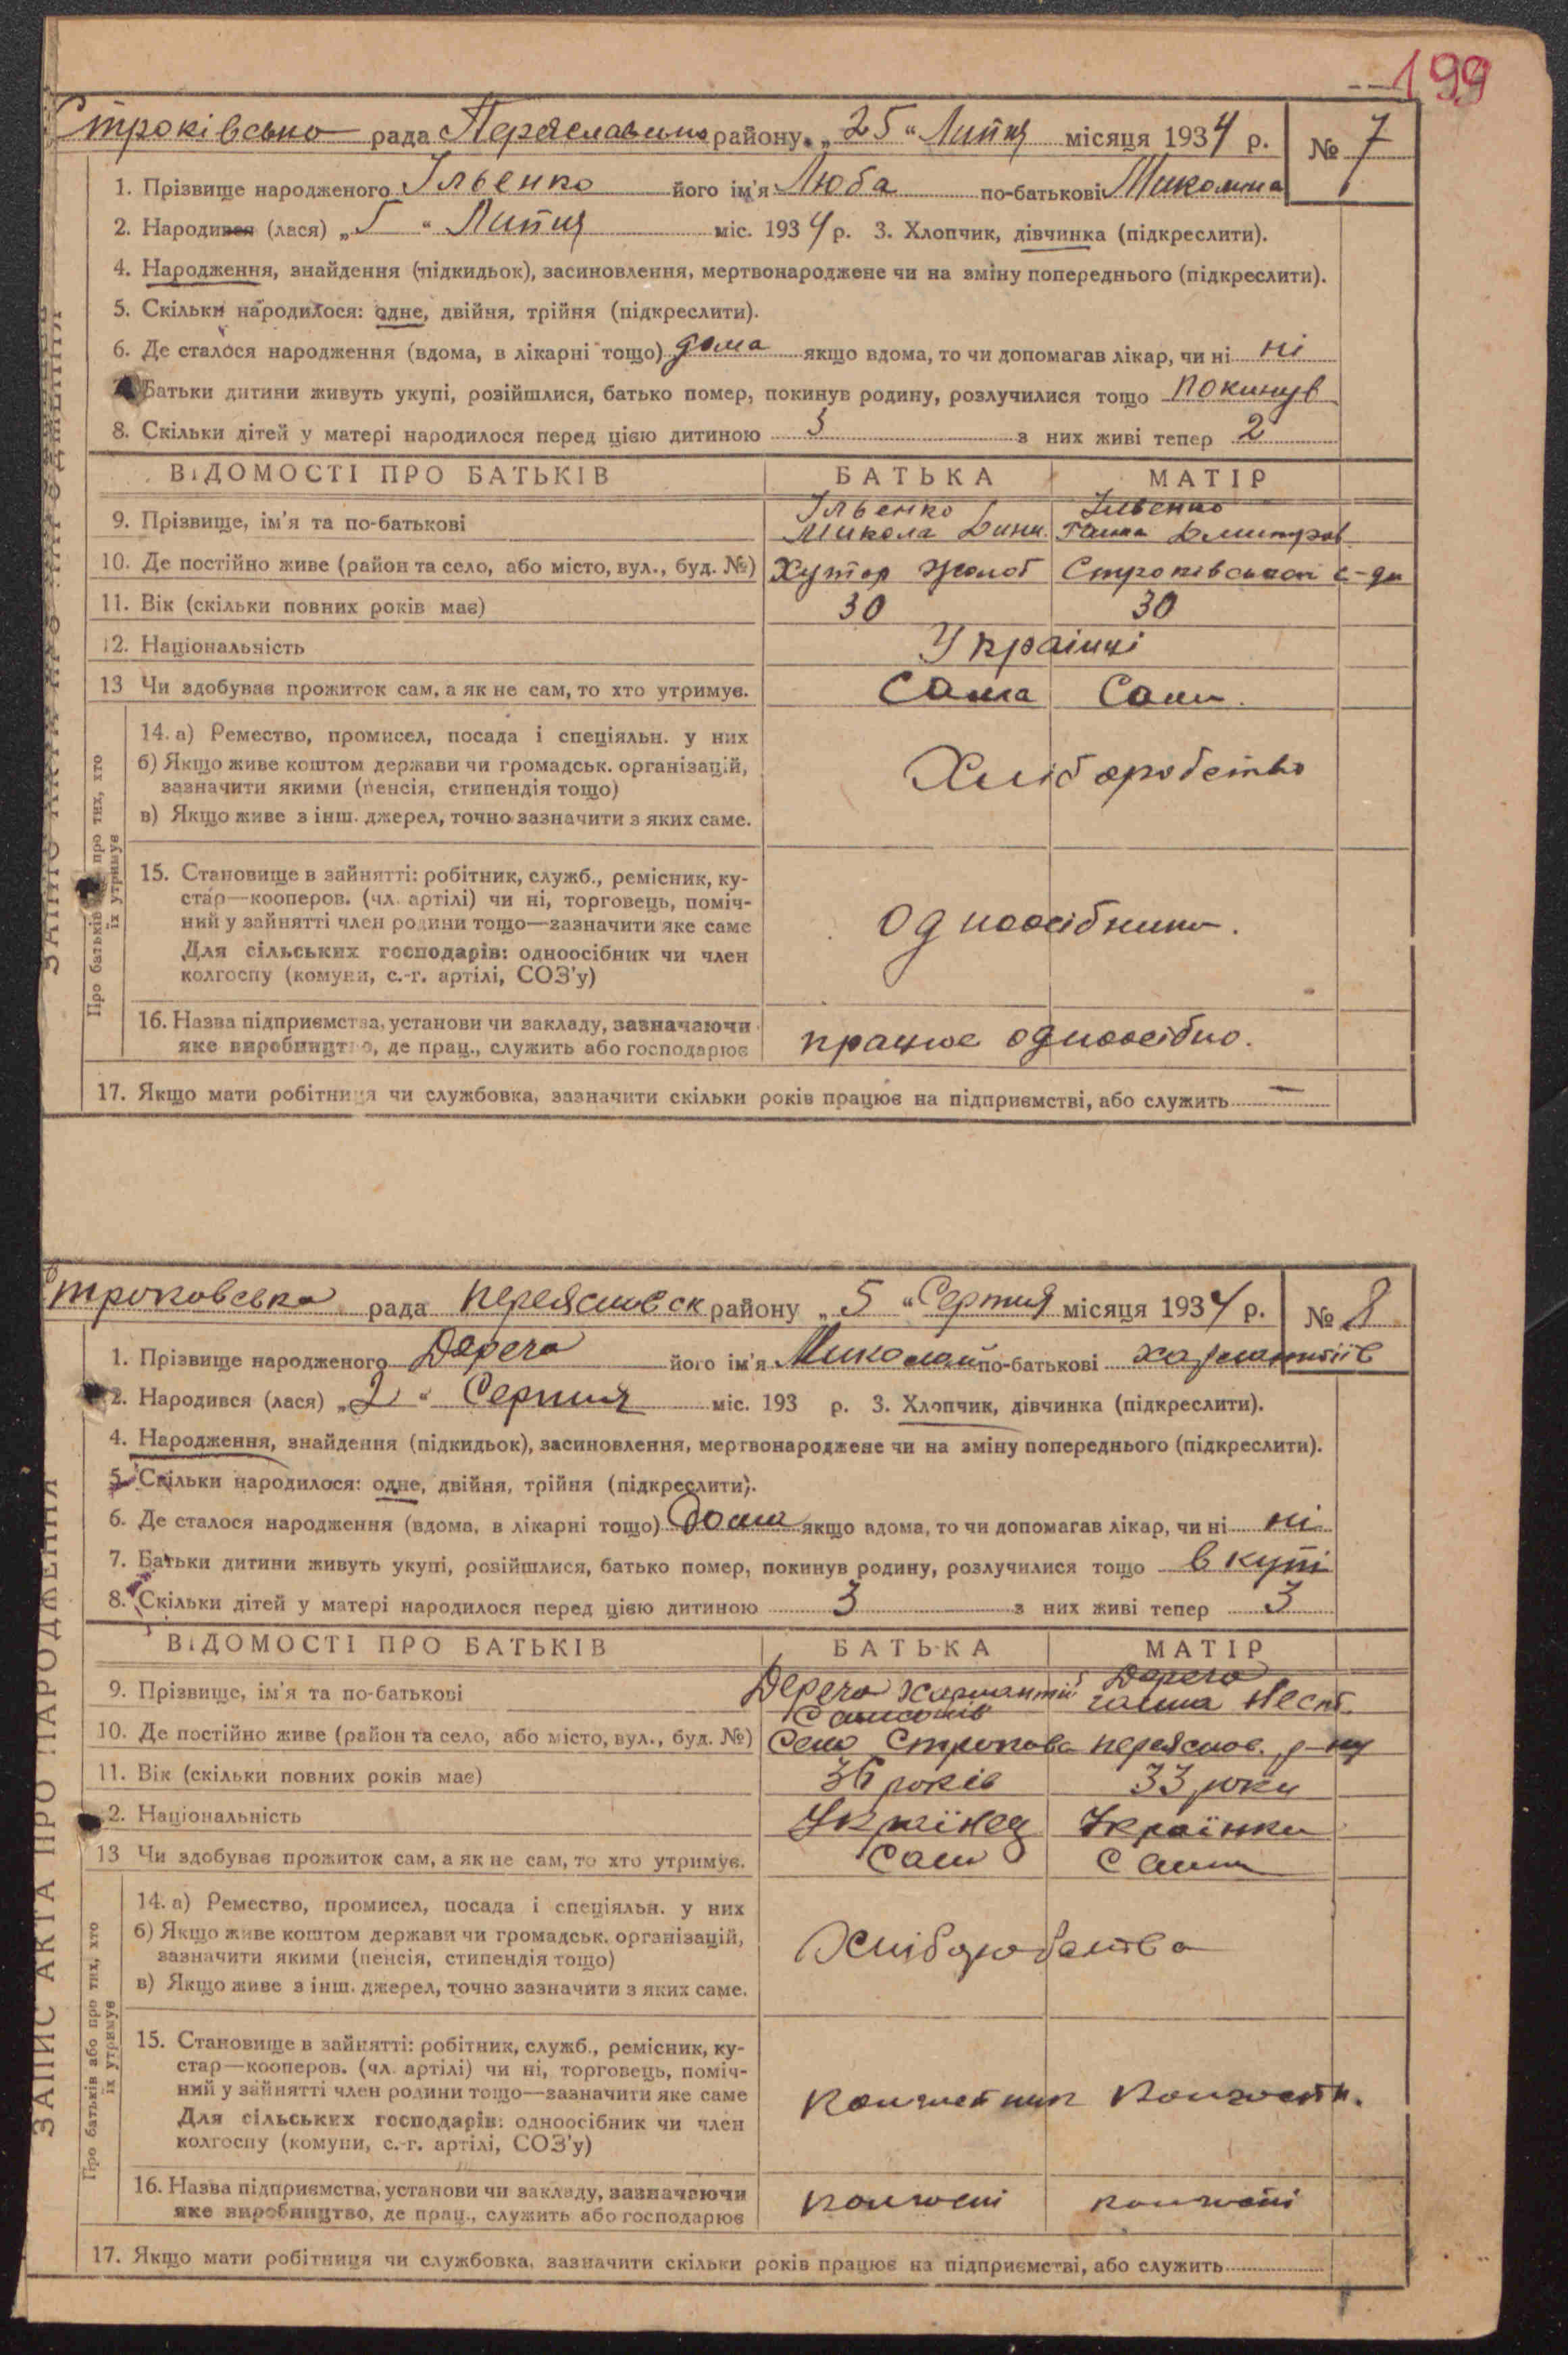 199
Строківсько рада Переяславськ району „ 25 “ Липня місяця 1934 р. № 7
1. Прізвище народженого Ільєнко його ім'я Люба по-батькові Миколина
2. Народився (лася) „ 5 “ Липня міс. 1934 р. 3. Хлопчик, дівчинка (підкреслити).
4. Народження, знайдення (підкидьок), засиновлення, мертвонароджене чи на зміну попереднього (підкреслити).
5. Скільки народилося: одне, двійня, трійня (підкреслити).
6. Де сталося народження (вдома, в лікарні тощо) дома якщо вдома, то чи допомагав лікар, чи ні ні
Батьки дитини живуть укупі, розійшлися, батько помер, покинув родину, розлучилися тощо покинув
8. Скільки дітей у матері народилося перед цією дитиною 3 з них живі тепер 2
ВІДОМОСТІ ПРО БАТЬКІВ БАТЬКА МАТІР
9. Прізвище, ім'я та по-батькові Ільєнко Микола Ільєнко Ганна Дмитров
10. Де постійно живе (район та село, або місто, вул., буд. №) Хутор Строківської с-ди
11. Вік (скільки повних років має) 30 30
12. Національність Українці
13 Чи здобував прожиток сам, а як не сам, то хто утримує. Сама Сами.
Про батьків про тих, хто їх утримує
14. а) Ремество, промисел, посада і спеціяльн. у них
б) Якщо живе коштом держави чи громадськ. організацій,
зазначити якими (пенсія, стипендія тощо) Хліборобство
в) Якщо живе з інш. джерел, точно зазначити з яких саме.
15. Становище в зайнятті: робітник, служб., ремісник, ку-
стар—кооперов. (чл. артілі) чи ні, торговець, поміч-
ний у зайнятті член родини тощо—зазначити яке саме одноосібники.
Для сільських господарів: одноосібник чи член
колгоспу (комуни, с.-г. артілі, СОЗ'у)
16. Назва підприємства, установи чи закладу, зазначаючи
яке виробництво, де прац., служить або господарює працює одноосібно.
17. Якщо мати робітниця чи службовка, зазначити скільки років працює на підприємстві, або служить —
Строковська рада переяславск району „ 5 “ Серпня місяця 1934 р. № 8
1. Прізвище народженого Дереча його ім'я Миколай по-батькові харлантіїв
2. Народився (лася) „ 2 “ Серпня міс. 193 р. 3. Хлопчик, дівчинка (підкреслити).
4. Народження, знайдення (підкидьок), засиновлення, мертвонароджене чи на зміну попереднього (підкреслити).
5. Скільки народилося: одне, двійня, трійня (підкреслити).
6. Де сталося народження (вдома, в лікарні тощо) Дома якщо вдома, то чи допомагав лікар, чи ні ні
7. Батьки дитини живуть укупі, розійшлися, батько помер, покинув родину, розлучилися тощо вкупі
8. Скільки дітей у матері народилося перед цією дитиною 3 з них живі тепер 3
ВІДОМОСТІ ПРО БАТЬКІВ БАТЬКА МАТІР
9. Прізвище, ім'я та по-батькові Дереча Харлантій Самсонів Дереча Галина Нест.
10. Де постійно живе (район та село, або місто, вул., буд. №) Село Строкова переяслов. р-ну
11. Вік (скільки повних років має) 36 років 33 роки
2. Національність Українец Українка
13 Чи здобував прожиток сам, а як не сам, то хто утримує. Сам Сама
ЗАПИС АКТА ПРО НАРОДЖЕННЯ
Про батьків або про тих, хто їх утримує
14. а) Ремество, промисел, посада і спеціяльн. у них
б) Якщо живе коштом держави чи громадськ. організацій,
зазначити якими (пенсія, стипендія тощо) Хліборобства
в) Якщо живе з інш. джерел, точно зазначити з яких саме.
15. Становище в зайнятті: робітник, служб., ремісник, ку-
стар—кооперов. (чл. артілі) чи ні, торговець, поміч-
ний у зайнятті член родини тощо—зазначити яке саме
Для сільських господарів: одноосібник чи член колгоспник колгоспн.
колгоспу (комуни, с.-г. артілі, СОЗ'у)
16. Назва підприємства, установи чи закладу, зазначаючи
яке виробництво, де прац., служить або господарює колгоспі колгоспі
17. Якщо мати робітниця чи службовка, зазначити скільки років працює на підприємстві, або служить